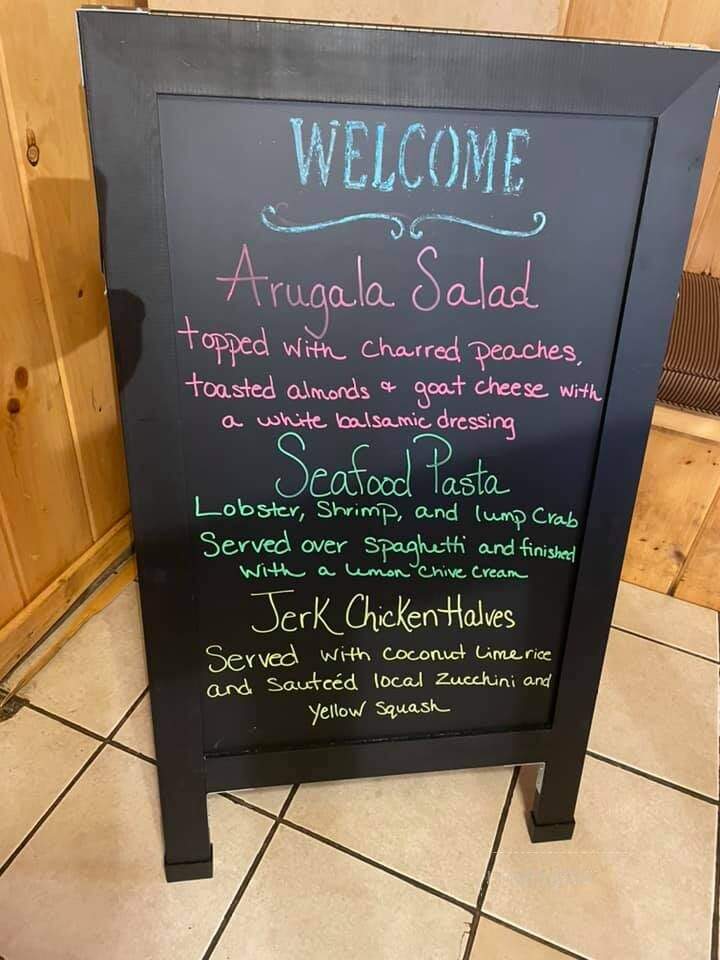 WELCOME
Arugala Salad
topped with charred peaches,
toasted almonds & goat cheese with
a white balsamic dressing
Seafood Pasta
Lobster, Shrimp, and lump Crab
Served over spaghetti and finished
with a lemon chive cream
Jerk Chicken Halves
Served with coconut lime rice
and sauteéd local zucchini and
yellow squash